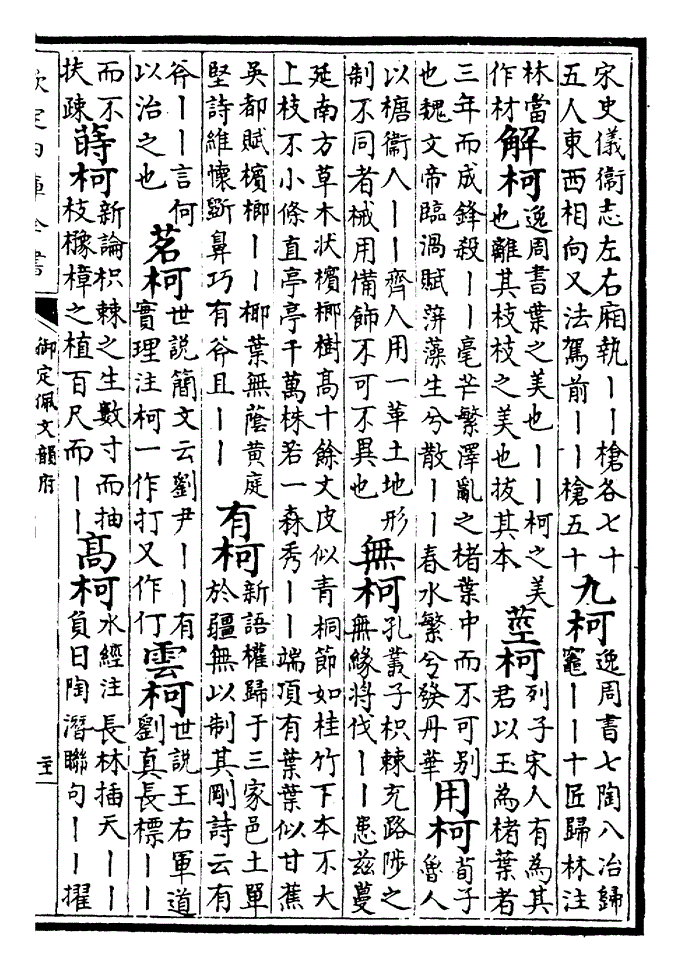 宋史儀衞志左右廂執丨丨槍各七十
五人東西相向又法駕前丨丨槍五十
九柯
逸周書七陶八冶歸
竈丨丨十匠歸林注
林當
作材
解柯
逸周書葉之美也丨丨柯之美
也離其枝枝之美也拔其本
莖柯
列子宋人有為其
君以玉為楮葉者
三年而成鋒殺丨丨毫芒繁澤亂之楮葉中而不可别
也魏文帝臨渦賦蓱藻生兮散丨丨春水繁兮發丹華
用柯
荀子
魯人
以榶衞人丨丨齊人用一革土地形
制不同者械用備飾不可不異也
無柯
孔叢子枳棘充路陟之
無緣將伐丨丨患兹蔓
延南方草木状檳榔樹髙十餘丈皮似青桐節如桂竹下本不大
上枝不小條直亭亭千萬株若一森秀丨丨端頂有葉葉似甘蕉
吳都賦檳榔丨丨椰葉無蔭黄庭
堅詩維懐斵鼻巧有斧且丨丨
有柯
新語權歸于三家邑土單
於疆無以制其剛詩云有
斧丨丨言何
以治之也
茗柯
世説簡文云劉尹丨丨有
實理注柯一作打又作仃
雲柯
世説王右軍道
劉真長標丨丨
而不
扶疎
蒔柯
新論枳棘之生數寸而抽
枝橡樟之植百尺而丨丨
髙柯
水經注長林插天丨丨
負日陶潛聯句丨丨擢
欽定四庫全書
御定佩文韻府